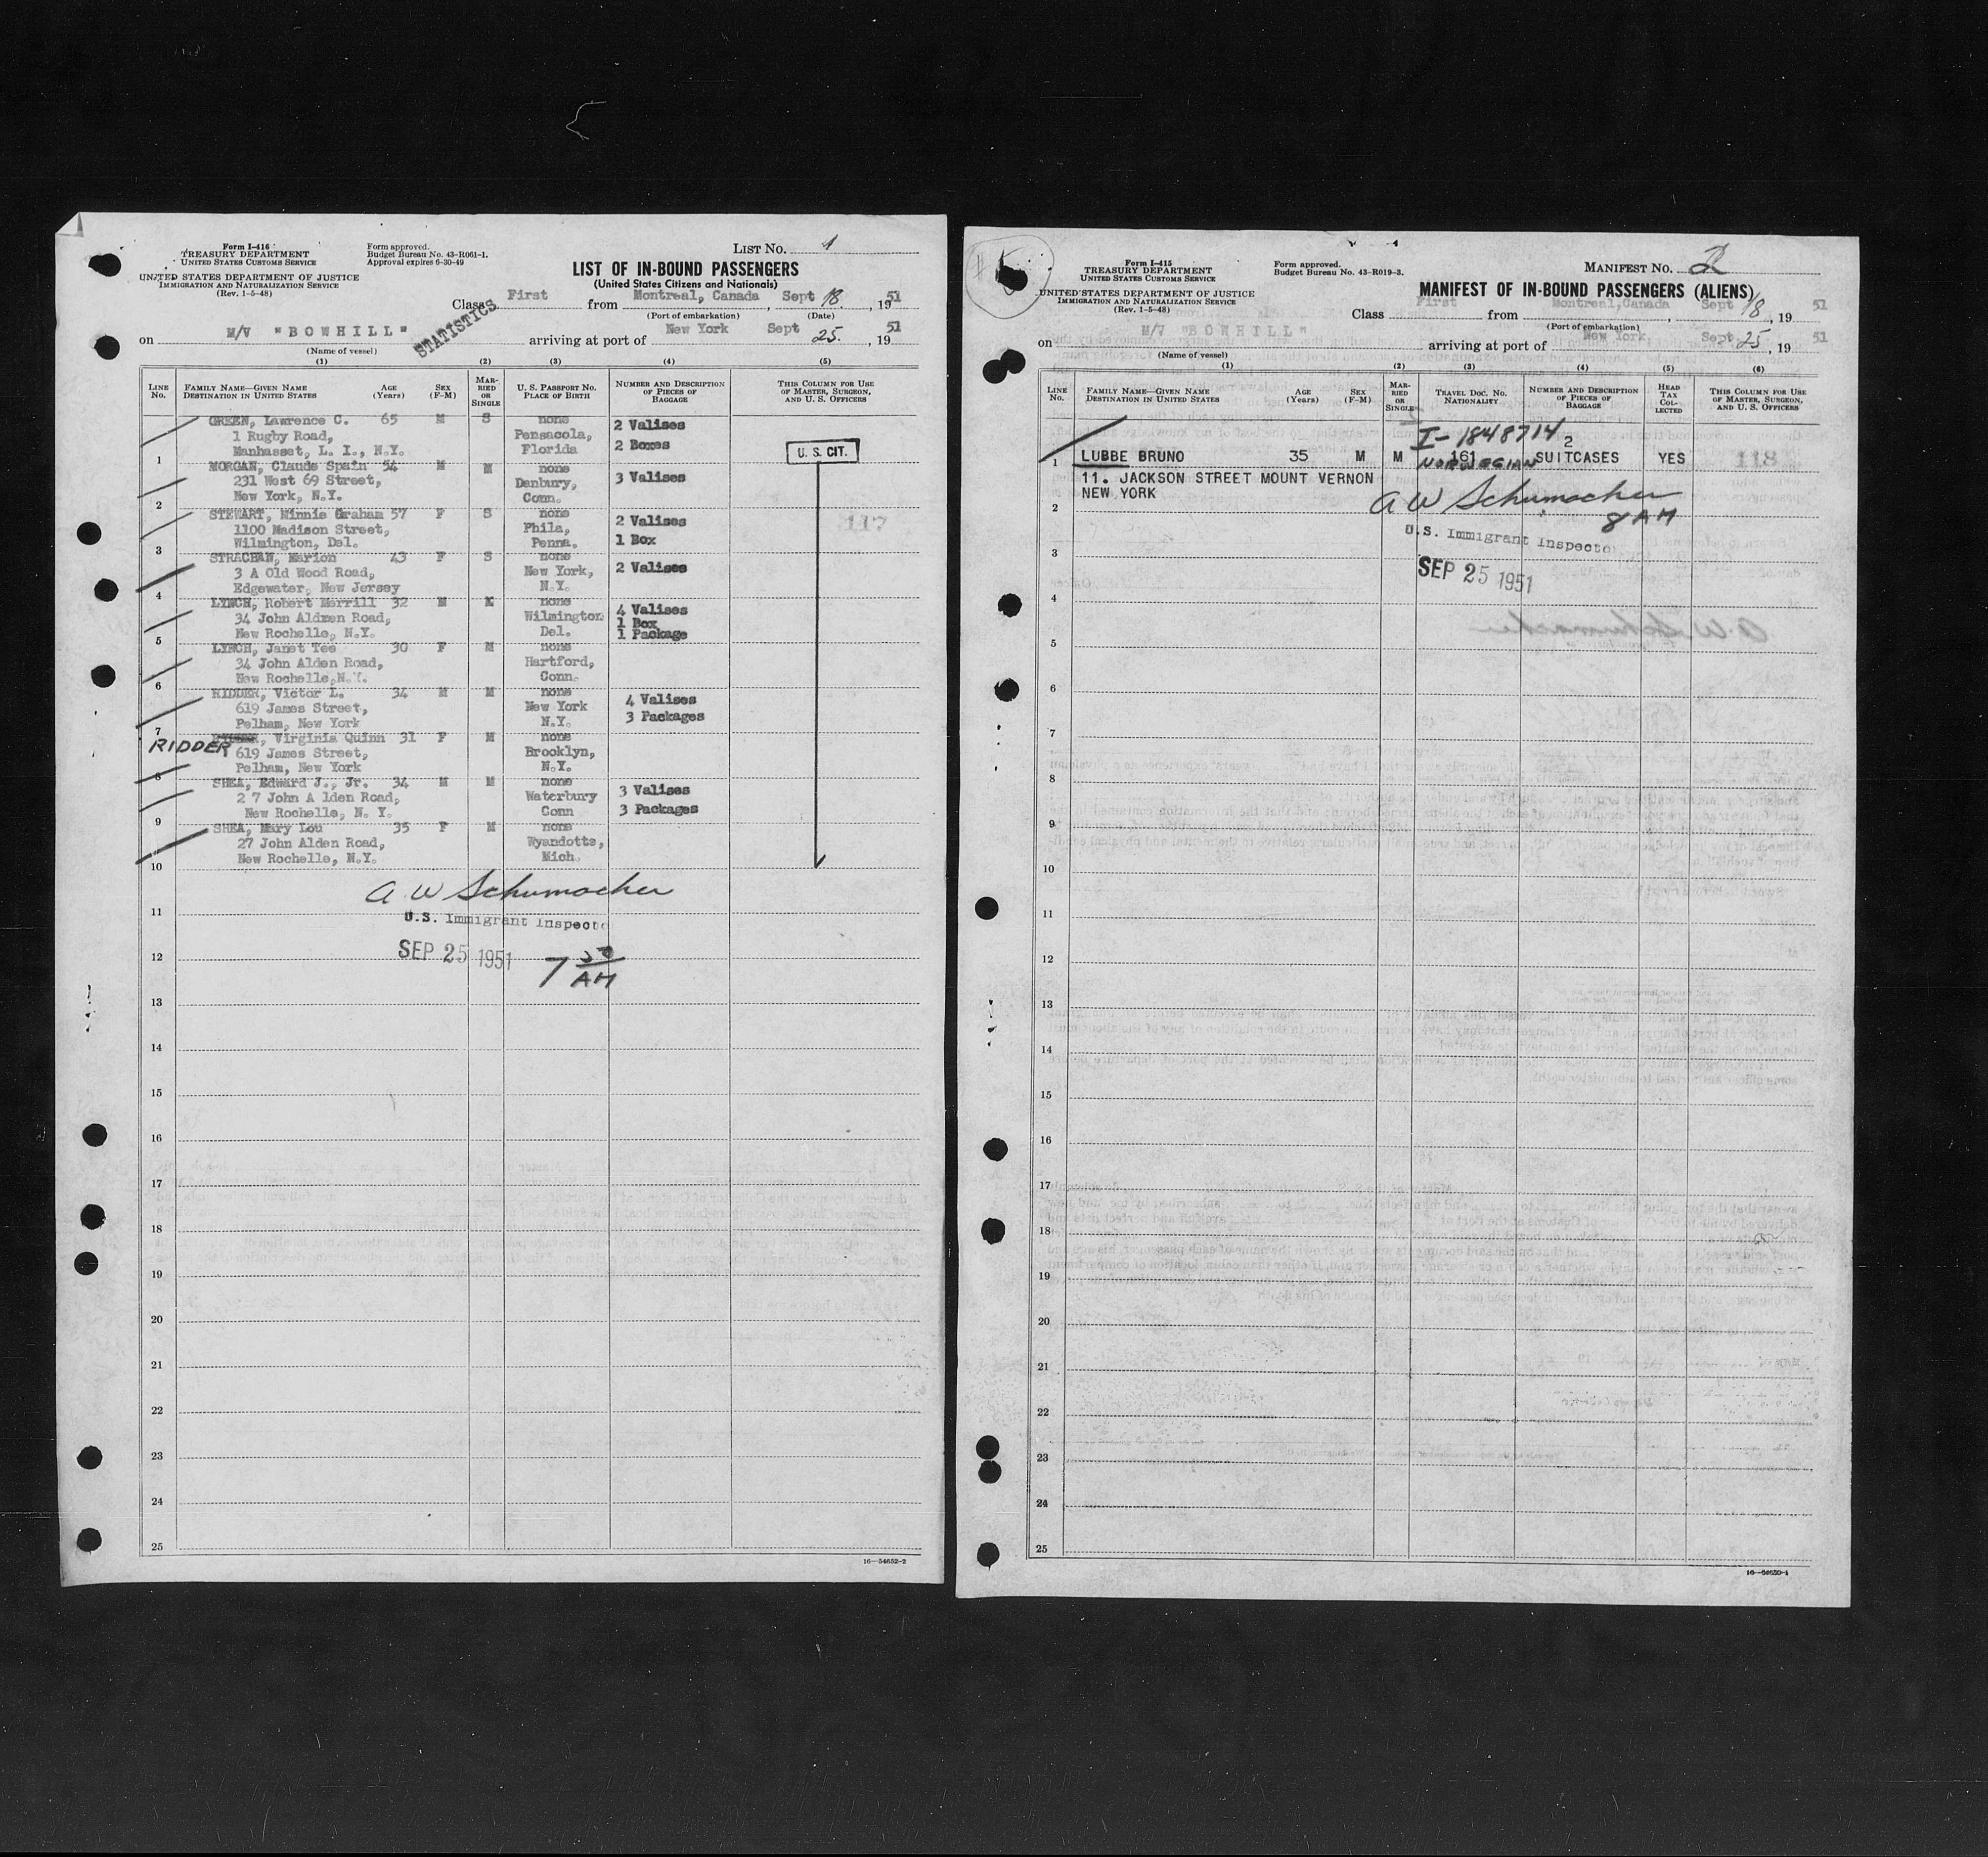 Form I-416
TREASURY DEPARTMENT
UNITED STATES CUSTOMS SERVICE
UNITED STATES DEPARTMENT OF JUSTICE
IMMIGRATION AND NATURALIZATION SERVICE
(Rev. 1-5-48)
Form approved.
Budget Bureau No. 43-R061-1.
Approval expires 6-30-49
LIST NO. 1
LIST OF IN-BOUND PASSENGERS
(United States Citizens and Nationals)
Class First from Montreal, Canada, Sept 18, 1951
(Port of embarkation) (Date)
STATISTICS
on M/V "BOWHILL" arriving at port of New York Sept 25, 1951
(Name of vessel)
(1) (2) (3) (4) (5)
LINE NO. FAMILY NAME—GIVEN NAME DESTINATION IN UNITED STATES AGE (Years) SEX (F-M) MARRIED OR SINGLE U. S. PASSPORT NO. PLACE OF BIRTH NUMBER AND DESCRIPTION OF PIECES OF BAGGAGE THIS COLUMN FOR USE OF MASTER, SURGEON, AND U. S. OFFICERS
GREEN, Lawrence C. 65 M S none 2 Valises
1 Rugby Road, Pensacola, 2 Boxes
1 Manhasset, L. I., N.Y. Florida U. S. CIT.
MORGAN, Claude Spain 54 M M none
231 West 69 Street, Danbury, 3 Valises
2 New York, N.Y. Conn.
STEWART, Minnie Graham 57 F S none 2 Valises
1100 Madison Street, Phila, 117
3 Wilmington, Del. Penna. 1 Box
STRACHAN, Marion 43 F S none
3 A Old Wood Road, New York, 2 Valises
4 Edgewater, New Jersey N.Y.
LYNCH, Robert Merrill 32 M none 4 Valises
34 John Aldmen Road, Wilmington 1 Box
5 New Rochelle, N.Y. Del. 1 Package
LYNCH, Janet Tee 30 F M none
34 John Alden Road, Hartford,
6 New Rochelle,N.Y. Conn.
RIDDER, Victor L. 34 M M none 4 Valises
619 James Street, New York 3 Packages
7 Pelham, New York N.Y.
RIDDER, Virginia Quinn 31 F M none
619 James Street, Brooklyn,
8 Pelham, New York N.Y.
SHEA, Edward J., Jr. 34 M M none 3 Valises
2 7 John A lden Road, Waterbury
9 New Rochelle, N. Y. Conn 3 Packages
SHEA, Mary Lou 35 F M none
27 John Alden Road, Wyandotte,
10 New Rochelle, N.Y. Mich.
A W Schumacher
11 U.S. Immigrant Inspecto
12 SEP 25 1951 7 30 AM
13
14
15
16
17
18
19
20
21
22
23
24
25
16—54652-2
Form I-415
TREASURY DEPARTMENT
UNITED STATES CUSTOMS SERVICE
UNITED STATES DEPARTMENT OF JUSTICE
IMMIGRATION AND NATURALIZATION SERVICE
(Rev. 1-5-48)
Form approved.
Budget Bureau No. 43-R019-3.
MANIFEST NO. 2
MANIFEST OF IN-BOUND PASSENGERS (ALIENS)
Class First from Montreal,Canada, Sept 18, 1951
(Port of embarkation)
on M/V "BOWHILL" arriving at port of New York, Sept 25, 1951
(Name of vessel)
(1) (2) (3) (4) (5) (6)
LINE NO. FAMILY NAME—GIVEN NAME DESTINATION IN UNITED STATES AGE (Years) SEX (F-M) MARRIED OR SINGLE TRAVEL DOC. NO. NATIONALITY NUMBER AND DESCRIPTION OF PIECES OF BAGGAGE HEAD TAX COLLECTED THIS COLUMN FOR USE OF MASTER, SURGEON, AND U. S. OFFICERS
I-1848714 2
1 LUBBE BRUNO 35 M M 161 SUITCASES YES 118
NORWEGIAN
11. JACKSON STREET MOUNT VERNON
NEW YORK
2 A W Schumacher
8 AM
3 U.S. Immigrant Inspector
SEP 25 1951
4
5
6
7
8
9
10
11
12
13
14
15
16
17
18
19
20
21
22
23
24
25